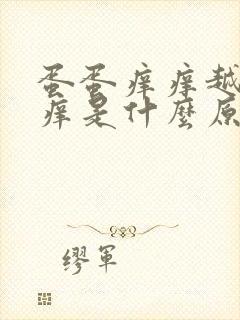 蛋蛋痒痒越
痒是什麼原
繆軍